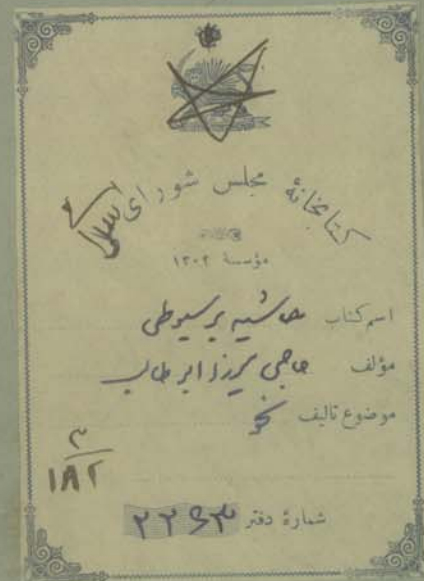 کتابخانهٔ مجلس شورای اسلامی
مؤسسهٔ ۱۳۰۲
اسم کتاب حاشیه بر سیوطی
مؤلف حاجی میرزا ابوطالب
موضوع تالیف نحو
۳
۱۸۲
شمارهٔ دفتر ۲۲۶۳